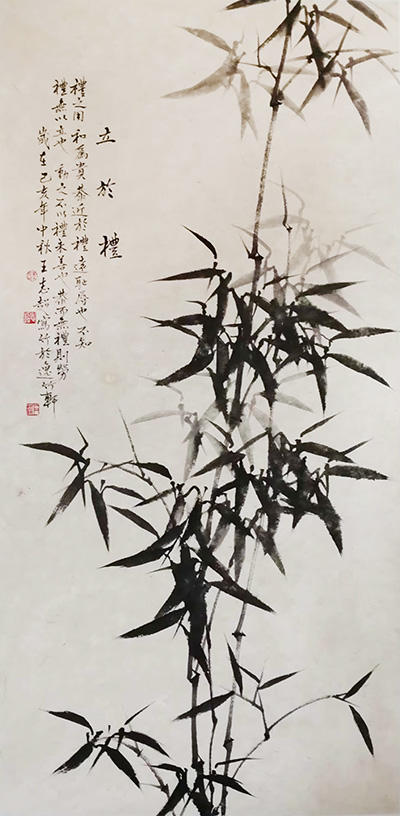 立於禮
禮之用和為貴恭近於禮遠恥辱也不知
禮無以立也動之不以禮未善也恭而無禮則勞
歲在己亥年中秋王志超寫竹於逸竹軒